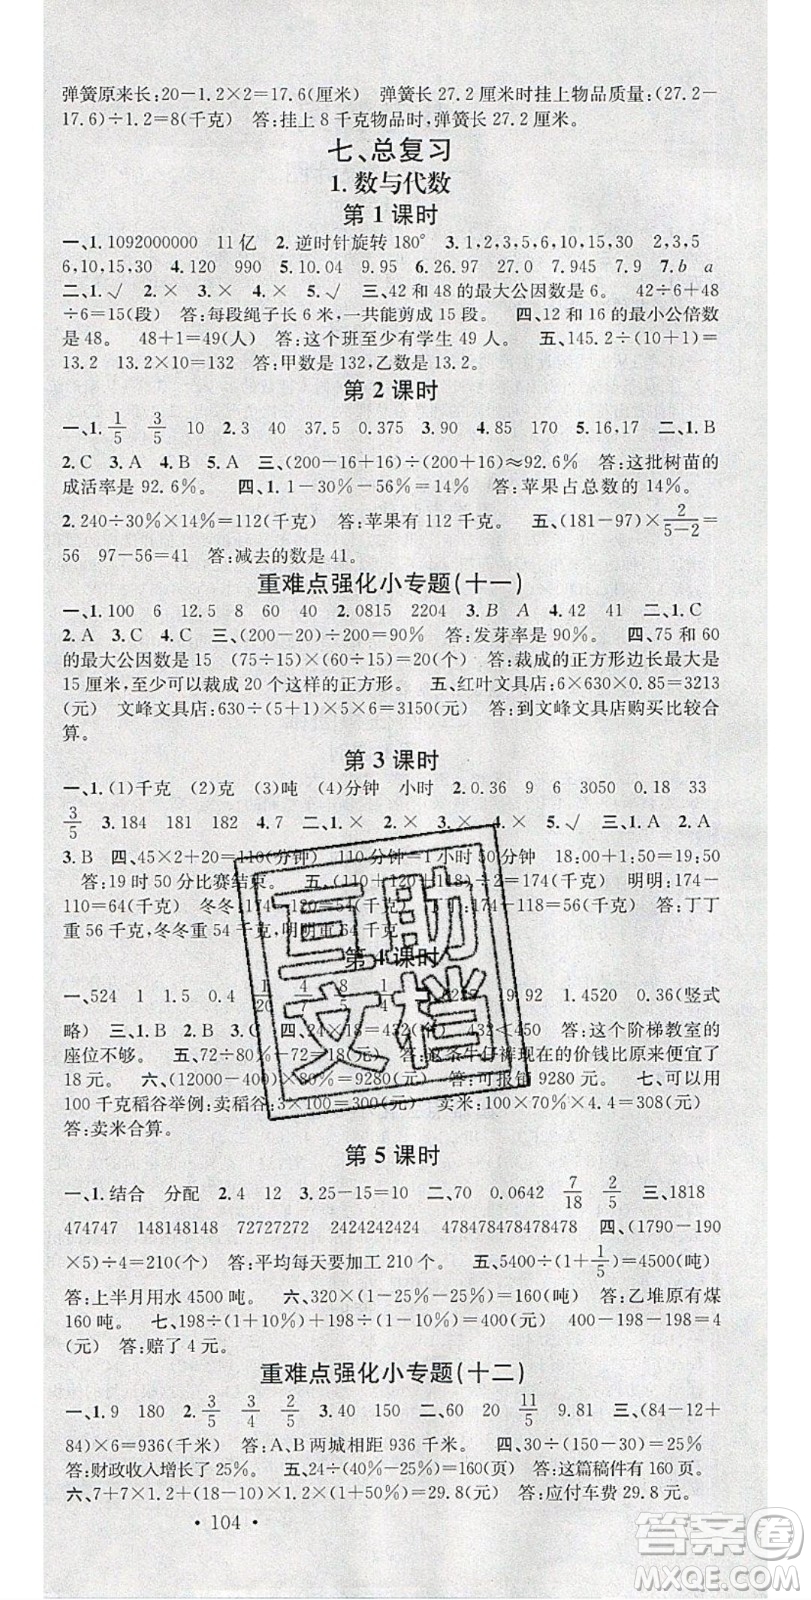 弹簧原来长:20－1.2×2=17.6(厘米)　弹簧长 27.2 厘米时挂上物品质量:(27.2－
17.6)÷1.2=8(千克)　答:挂上 8 千克物品时,弹簧长 27.2 厘米。
七、总复习
1.数与代数
第 1 课时
一、1.1092000000　11亿　2.逆时针旋转 180°　3.1,2,3,5,6,10,15,30　2,3,5
6,10,15,30　4.120　990　5.10.04　9.95　6.26.97　27.0　7.945　7.9　7.b　a
二、1.√　2.×　3.×　4.×　5.√　三、42 和 48 的最大公因数是 6。　42÷6+48
÷6=15(段)　答:每段绳子长 6 米,一共能剪成 15 段。　四、12 和 16 的最小公倍数
是 48。　48+1=49(人)　答:这个班至少有学生 49 人。　五、145.2÷(10+1)=
13.2　13.2×10=132　答:甲数是 132,乙数是 13.2。
第 2 课时
一、1.1/5　3/5　10　2.3　40　37.5　0.375　3.90　4.85　170　5.16,17　二、1.B
2.C　3.A　4.B　5.A　三、(200－16+16)÷(200+16)≈92.6%　答:这批树苗的
成活率是 92.6%。　四、1.1－30%－56%=14%　答:苹果占总数的 14%。
2.240÷30%×14%=112(千克)　答:苹果有 112 千克。　五、(181－97)×2/(5－2)=
56　97－56=41　答:减去的数是 41。
重难点强化小专题(十一)
一、1.100　6　12.5　8　60　40　2.0815　2204　3.B　A　4.42　41　二、1.C
2.A　3.C　4.A　三、(200－20)÷200=90%　答:发芽率是 90%。　四、75 和 60
的最大公因数是 15　(75÷15)×(60÷15)=20(个)　答:裁成的正方形边长最大是
15 厘米,至少可以裁成 20 个这样的正方形。　五、红叶文具店:6×630×0.85=3213
(元)　文峰文具店:630÷(5+1)×5×6=3150(元)　答:到文峰文具店购买比较合
算。
第 3 课时
一、1.(1)千克　(2)克　(3)吨　(4)分钟　小时　2.0.36　9　6　3050　0.18　33
3/5　3.184　181　182　4.7　二、1.×　2.×　3.×　4.×　5.√　三、1.A　2.A
3.B　四、45×2+20=110(分钟)　110 分钟=1 小时 50 分钟　18:00+1:50=19:50
答:19 时 50 分比赛结束。　五、(110+120+118)÷2=174(千克)　明明:174－
110=64(千克)　冬冬:174－120=54(千克)　丁丁:174－118=56(千克)　答:丁丁
重 56 千克,冬冬重 54 千克,明明重 64 千克。
第 4 课时
一、524　1　1.5　0.4　1/20　　19.92　1.4520　0.36(竖式
略)　三、1.B　2.B　3.C　四、24×18=432(个)　432<450　答:这个阶梯教室的
座位不够。　五、72÷80%－72=18(元)　答:这条牛仔裤现在的价钱比原来便宜了
18 元。　六、(12000－400)×80%=9280(元)　答:可报销 9280 元。　七、可以用
100 千克稻谷举例:卖稻谷:3×100=300(元)　卖米:100×70%×4.4=308(元)
答:卖米合算。
第 5 课时
一、1.结合　分配　2.4　12　3.25－15=10　二、70　0.0642　7/18　2/5　三、1818
474747　148148148　72727272　2424242424　478478478478478　四、(1790－190
×5)÷4=210(个)　答:平均每天要加工 210 个。　五、5400÷(1+1/5)=4500(吨)
答:上半月用水 4500 吨。　六、320×(1－25%－25%)=160(吨)　答:乙堆原有煤
160 吨。　七、198÷(1+10%)+198÷(1－10%)=400(元)　400－198×2=4
(元)　答:赔了 4 元。
重难点强化小专题(十二)
一、1.9　180　2.3/5　3/4　2/5　3.40　150　二、60　20　11/5　9.81　三、(84－12+
84)×6=936(千米)　答:A、B 两城相距 936 千米。　四、30÷(150－30)=25%
答:财政收入增长了 25%。　五、24÷(1－35%－50%)=160(页)　答:这篇稿件有 160 页。
六、7+7×1.2+(18－10)×1.2×(1+50%)=29.8(元)　答:应付车费 29.8 元。
· 104 ·
互助
文档
答案圈
MXQE.COM